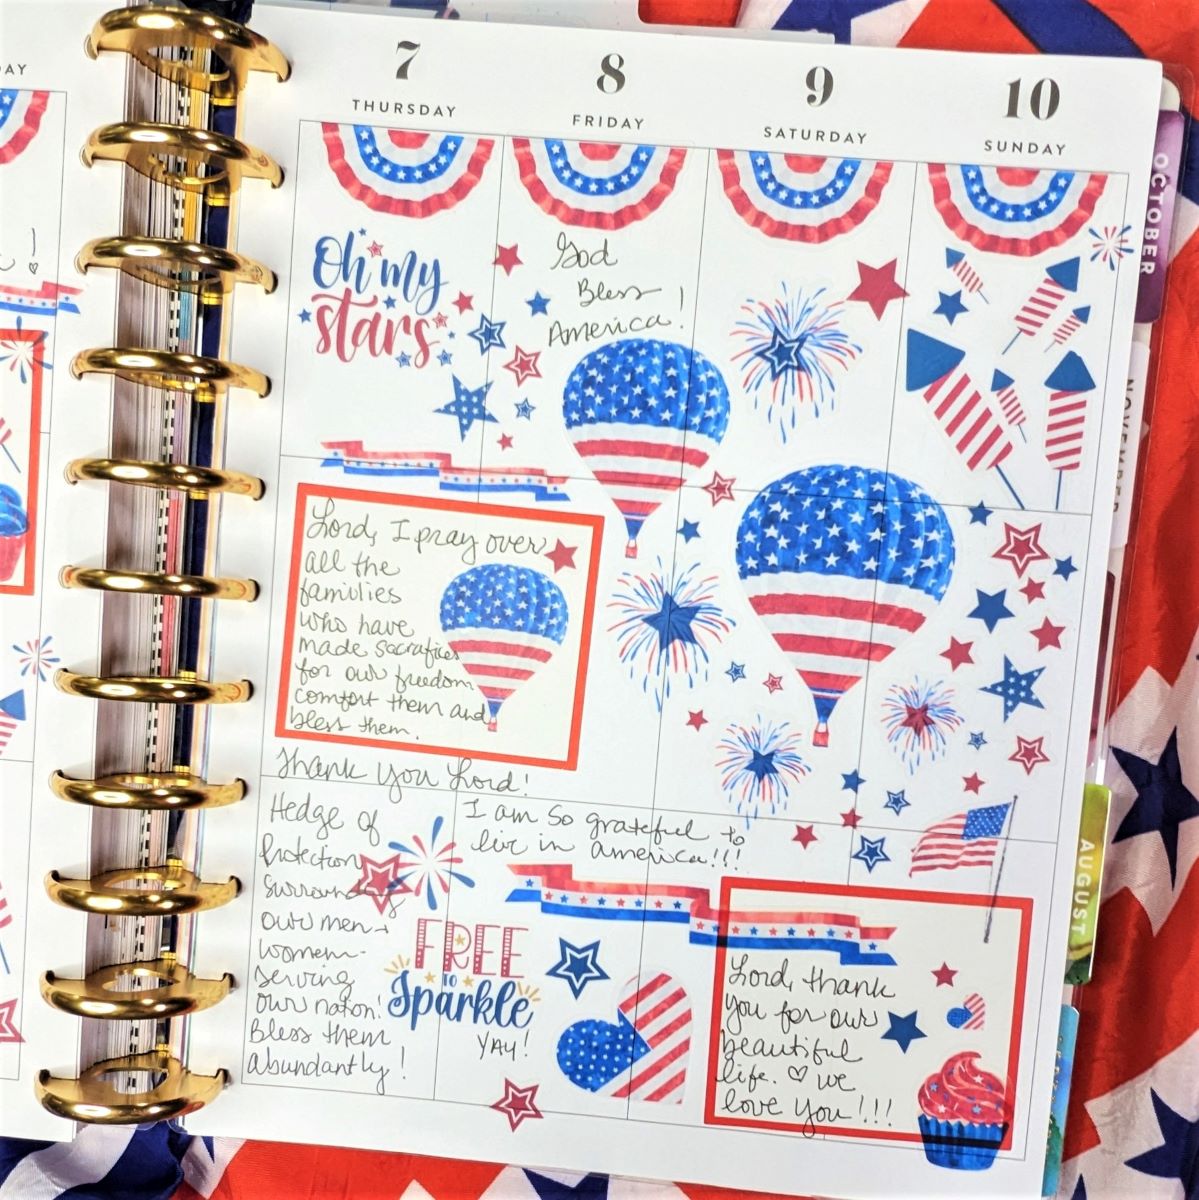 AY
7
THURSDAY
8
FRIDAY
9
SATURDAY
10
SUNDAY
OCTOBER
NOVEMBER
AUGUST
Oh my
stars
God
Bless
America!
Lord, I pray over
all the
families
who have
made sacrafices
for our freedom
comfort them and
bless them.
Thank you Lord!
Hedge of
Protection
Surrounding
our men +
women-
serving
our nation!
Bless them
abundantly!
I am so grateful to
live in America!!!
FREE
to
Sparkle
YAY!
Lord, thank
you for our
beautiful
life. ♡ we
love you!!!